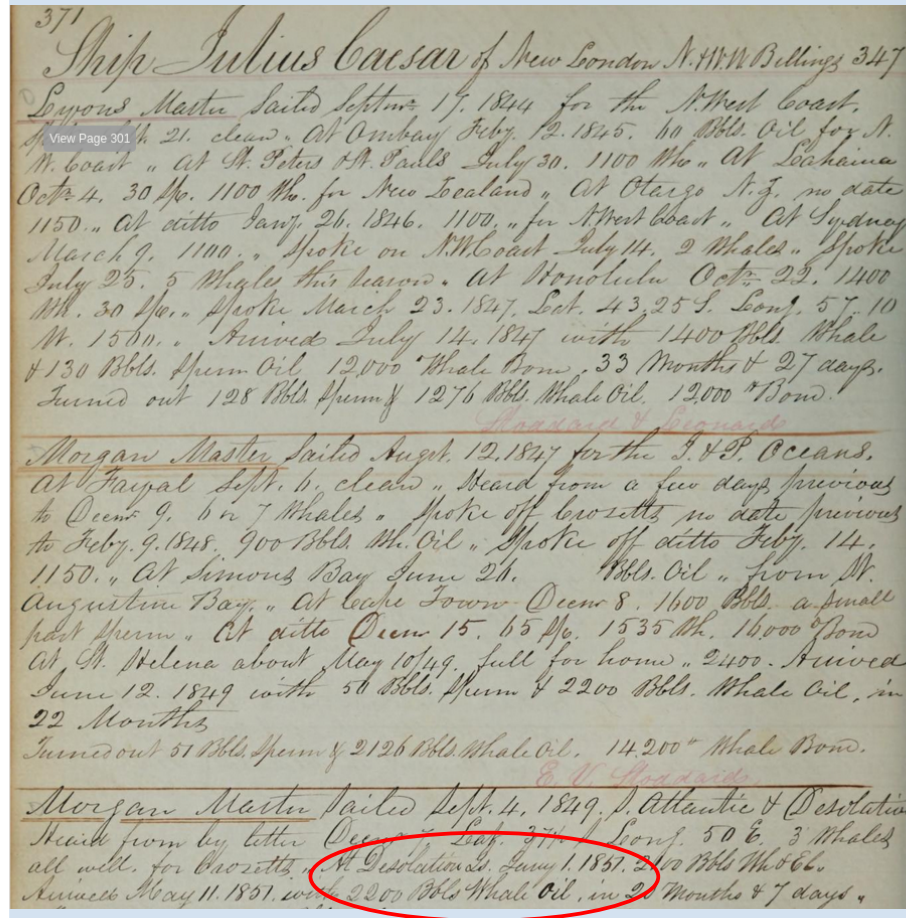 371
Ship Julius Caesar of New London N. & W. W Billings 347
Lyons Master Sailed Septmr 17. 1844 for the N. West Coast.
View Page 301
21. clean " At Ombay Feby. 12. 1845. 60 Bbls. Oil for N.
W. Coast " at St. Peters & St. Pauls July 30. 1100 Wh " At Lahaina
Octr 4. 30 Sp. 1100 Wh. for New Zealand " At Otargo N. Z. no date
1150. " at ditto Jany. 26. 1846. 1100. " for N West Coast " At Sydney
March 9. 1100. " Spoke on N.W. Coast July 14. 2 Whales " Spoke
July 25. 5 Whales this season " at Honolulu Octr 22. 1400
Wh. 30 Sp. " Spoke March 23. 1847. Lat. 43.25 S. Long. 57.10
W. 1500. " Arrived July 14. 1847 with 1400 Bbls. Whale
& 130 Bbls. Sperm Oil 12,000 # Whale Bone. 33 Months & 27 days.
Turned out 128 Bbls Sperm & 1276 Bbls. Whale Oil. 12,000 # Bone.
Stoddard & Leonard
Morgan Master Sailed Augst. 12. 1847 for the I. & P. Oceans.
at Fayal Sept. 6. clean " Heard from a few days previous
to Decmr 9. 6 or 7 Whales " Spoke off Crosetts no date previous
to Feby. 9. 1848. 900 Bbls. Wh. Oil " Spoke off ditto Feby. 14.
1150. " At Simons Bay June 26. Bbls. Oil " from St.
Augustine Bay. " At Cape Town Decmr 8. 1600 Bbls. a small
part Sperm " At ditto Decmr 15. 65 Sp. 1535 Wh. 16000 # Bone
At St. Helena about May 10/49. full for home " 2400. Arrived
June 12. 1849 with 50 Bbls. Sperm & 2200 Bbls. Whale Oil, in
22 Months
Turned out 51 Bbls. Sperm & 2126 Bbls. Whale Oil. 14,200 # Whale Bone.
E. V. Stoddard
Morgan Master Sailed Sept. 4. 1849. S. Atlantic & Desolation
Heard from by letter Decmr 7 Lat. 37 S Long. 50 E. 3 Whales
all well. for Crosetts " At Desolation Is. Jany 1. 1851. 2100 Bbls Wh &
Arrived May 11. 1851. with 2200 Bbls Whale Oil, in 20 Months & 7 days "